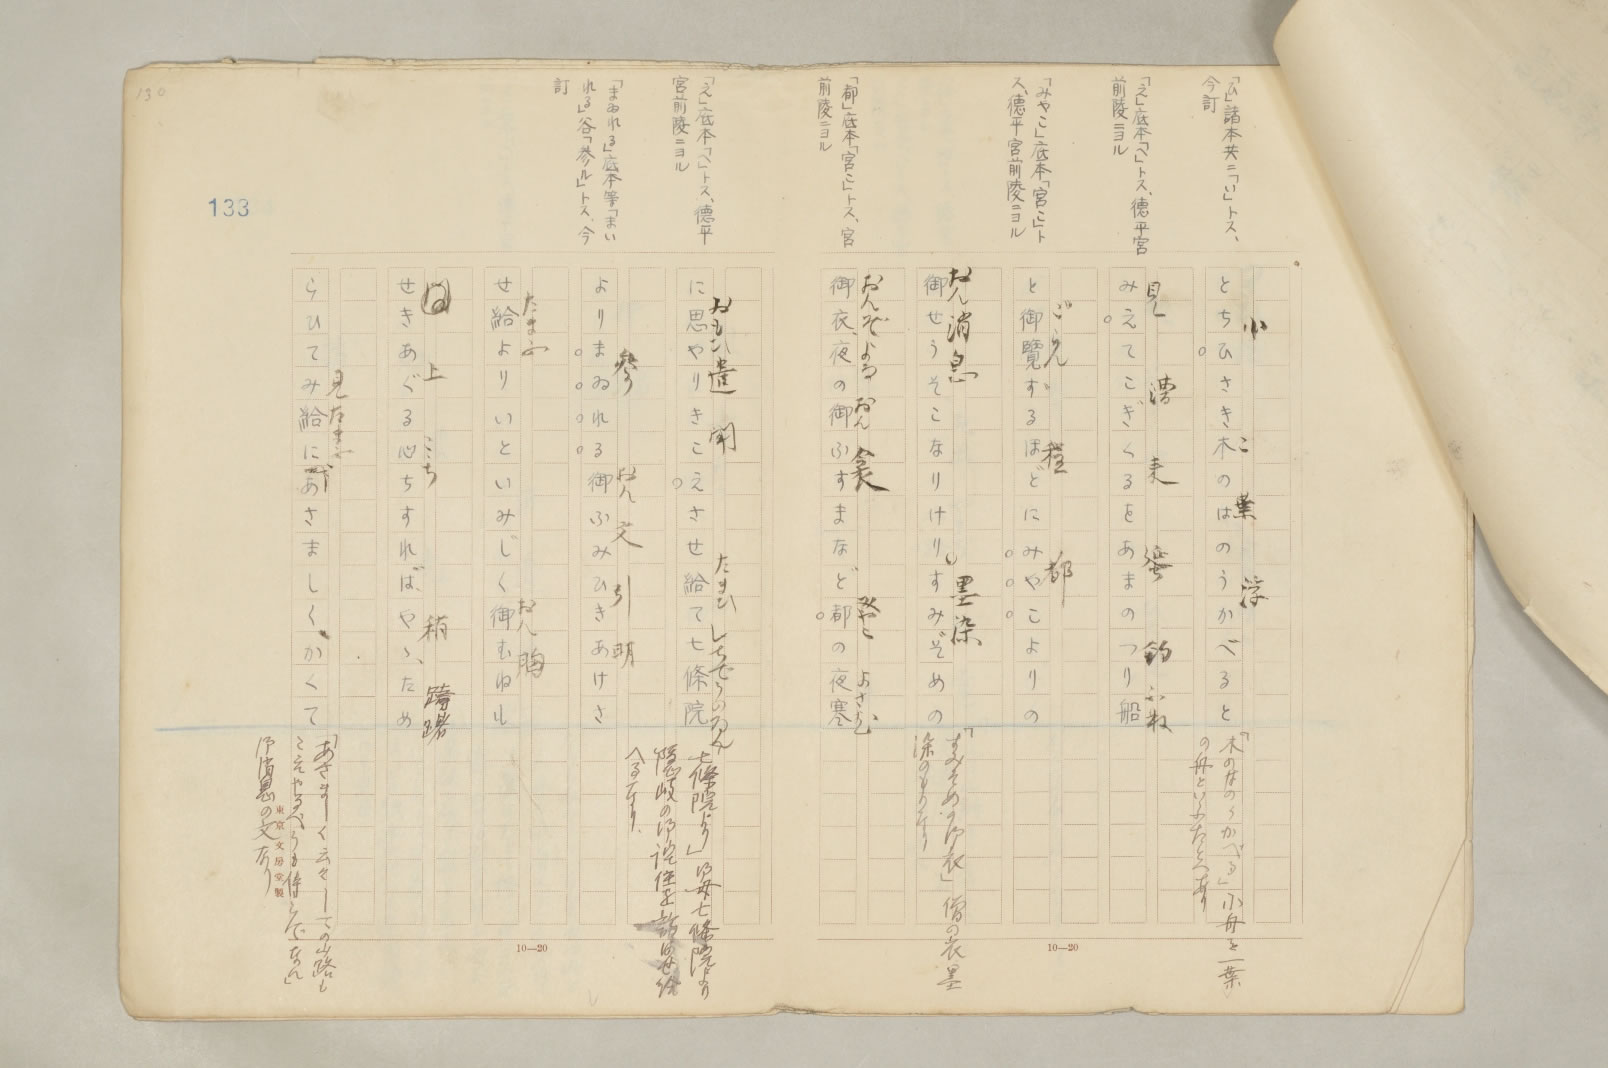 「ひ」諸本共ニ「い」トス、
今訂
「え」底本「へ」トス、徳平宮
前陵ニヨル
「みやこ」底本「宮こ」ト
ス、徳平宮前陵ニヨル
「都」底本「宮こ」トス、宮
前陵ニヨル
「え」底本「へ」トス、徳平
宮前陵ニヨル
「まゐれる」底本等「まい
れる」谷「參ル」トス、今
訂
130
133
小 こ 葉 浮
とちひさき木のはのうかべると
見 漕 来 蜑 釣 ふね
みえてこぎくるをあまのつり船
ごらん 程 都
と御覽ずるほどにみやこよりの
おん消息 墨染
御せうそこなりけり」すみぞめの
おんぞ よる おん 衾 みやこ よさむ
御衣、夜の御ふすまなど都の夜寒
おもひ 遣 聞 たまひ しちでうのゐん
に思やりきこえさせ給て七條院
參 おん 文 引 明
よりまゐれる御ふみひきあけさ
たまふ おん 胸
せ給よりいといみじく御むねも
上 こゝち 稍 躊躇
せきあぐる心ちすれば、やゝ、ため
見 たまふ
らひてみ給にあさましくかくて
「木のはのうかべる」小舟を一葉
の舟といふたとへあり
「すみぞめの御衣」僧の衣墨
染のものなり
「七條院より」御母七條院より
隠岐の御
へるなり、
「あさましく云々」
御消息の文なり
東京文母堂製
10—20
10—20